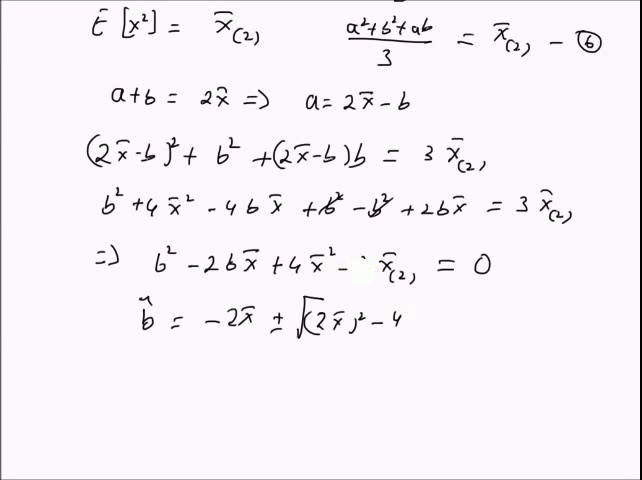 E [x²] = x̄₍₂₎   (a²+b²+ab)/3 = x̄₍₂₎ – ⑥
a+b = 2x̄ => a = 2x̄ – b
(2x̄-b)² + b² + (2x̄-b)b = 3 x̄₍₂₎
b² + 4x̄² - 4bx̄ + b² - b² + 2bx̄ = 3 x̄₍₂₎
=> b² - 2bx̄ + 4x̄² - x̄₍₂₎ = 0
b̂ = - 2x̄ ± √(2x̄)² - 4